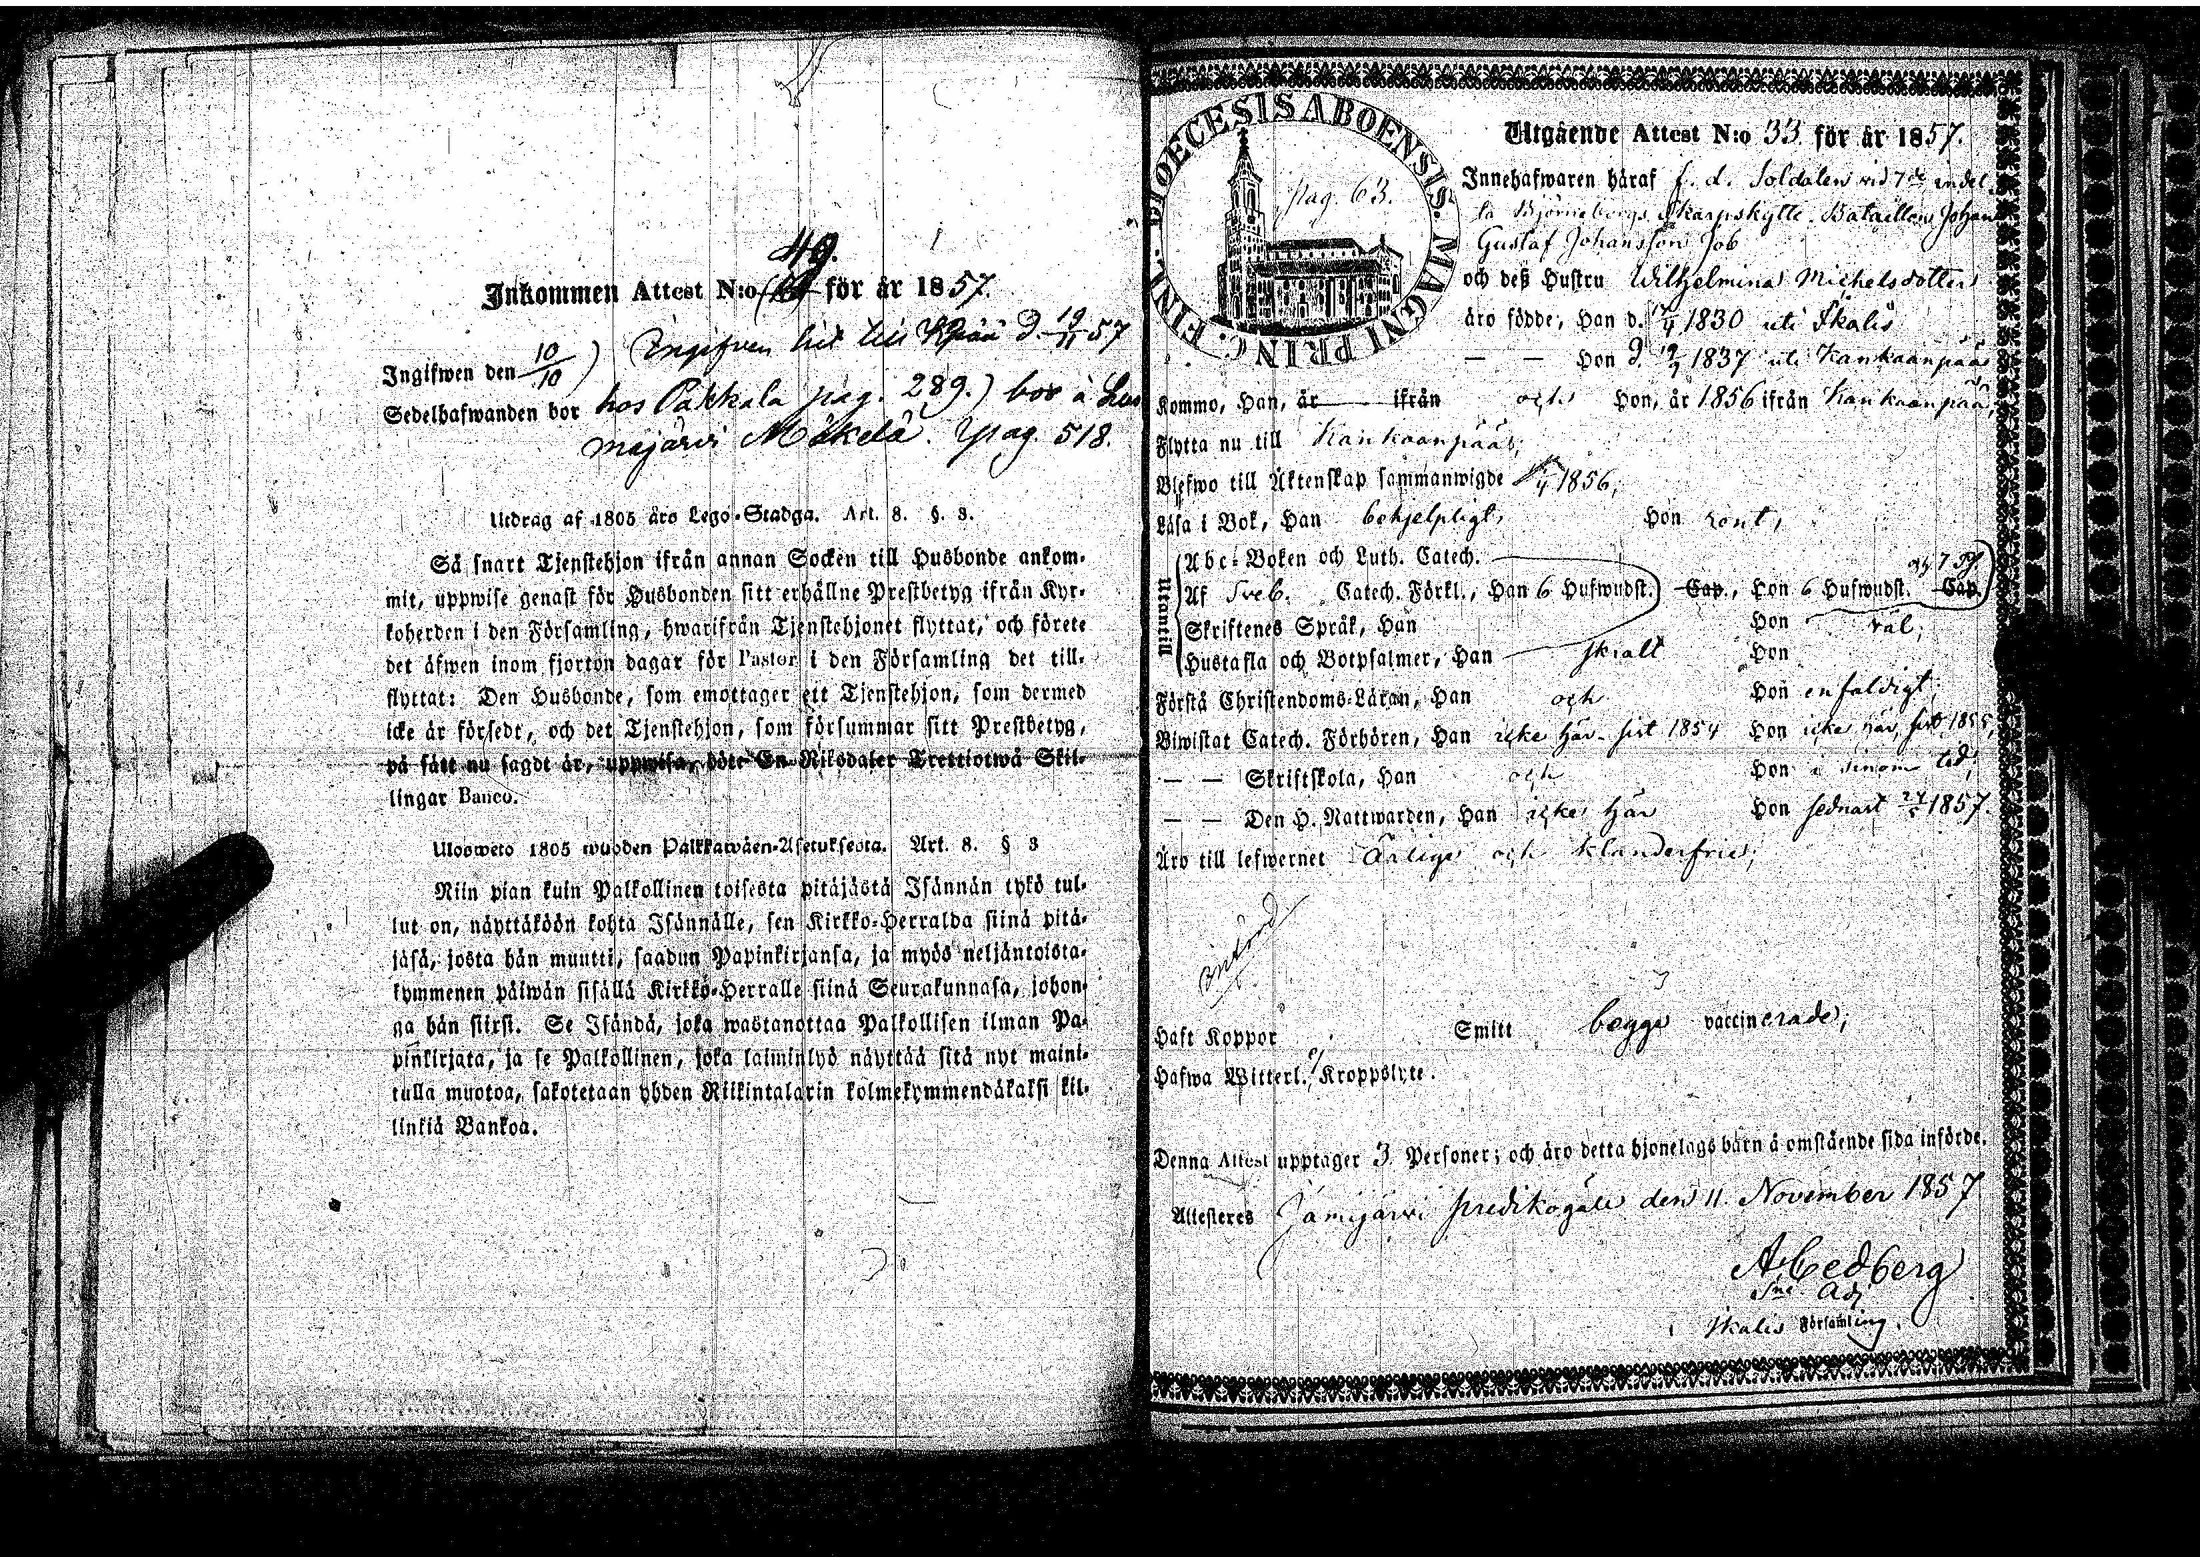 49.
Inkommen Attest N:o för år 1857.
Ingifven hit till Kpää d. 19/11 57
Ingifwen den 10/10)
Sedelhafwanden bor hos Pakkala pag. 289.) bor å Lus
majärvi Mäkelä. pag. 518.
Utdrag af 1805 års Lego-Stadga. Art. 8. §. 3.
Så snart Tjenstehjon ifrån annan Socken till Husbonde ankom-
mit, uppwise genast för Husbonden sitt erhållne Prestbetyg ifrån Kyr-
koherden i den Församling, hwarifrån Tjenstehjonet flyttat, och förete
det äfwen inom fjorton dagar för Pastor i den Församling det till-
flyttat: Den Husbonde, som emottager ett Tjenstehjon, som dermed
icke är försedt, och det Tjenstehjon, som försummar sitt Prestbetyg,
på sätt nu sagdt är, uppwisa, böte En Riksdaler Trettiotwå Skil-
lingar Banco.
Ulosweto 1805 wuoden Palkkawäen-Asetuksesta. Art. 8. § 3
Niin pian kuin Palkollinen toisesta pitäjästä Isännän tykö tul-
lut on, näyttäköön kohta Isännälle, sen Kirkko-Herralda siinä pitä-
jäsä, josta hän muutti, saadun Papinkirjansa, ja myös neljäntoista-
kymmenen päiwän sisällä Kirkko-Herralle siinä Seurakunnasa, johon-
ga hän siirsi. Se Isändä, joka wastanottaa Palkollisen ilman Pa-
pinkirjata, ja se Palkollinen, joka laiminlyö näyttää sitä nyt maini-
tulla muotoa, sakotetaan yhden Riikintalarin kolmekymmendäkaksi kil-
linkiä Bankoa.
DIOECESIS ABOENSIS. MAGNI PRINC. FINL.
pag. 63.
Utgående Attest N:o 33 för år 1857.
Innehafwaren häraf f. d. Soldaten vid 7de indel
ta Björneborgs Skarpskytte Bataillon Johan
Gustaf Johansson Job
och deß Hustru Wilhelmina Michelsdotter
äro födde, Han d. 1830 uti Ikalis
— — Hon d. 1837 uti Kankaanpää
Kommo, Han, år — ifrån och Hon, år 1856 ifrån Kankaanpää,
Flytta nu till Kankaanpää;
Blefwo till Äktenskap sammanwigde 1856,
Läsa i Bok, Han behjelpligt, Hon rent,
Utantill
Abc-Boken och Luth. Catech.
Af Sveb. Catech. Förkl., Han 6 Hufwudst. Cap., Hon 6 Hufwudst. Cap.
Skriftenes Språk, Han Hon väl;
Hustafla och Botpsalmer, Han skralt Hon
Förstå Christendoms-Läran, Han och Hon enfaldigt;
Biwistat Catech. Förhören, Han icke här sist 1854 Hon icke här sist 1855,
— — Skriftskola, Han och Hon i sinom tid;
— — Den H. Nattwarden, Han icke här Hon sednast 1857.
Äro till lefwernet Ärlige och klanderfrie;
Haft Koppor Smitt begge vaccinerade;
Hafwa Witterl. Kroppslyte.
Denna Attest upptager 3 Personer; och äro detta hjonelags barn å omstående sida införde.
Attesteres Jämijärvi predikogäll den 11. November 1857
Cedberg
Adj
i Ikalis Församling.